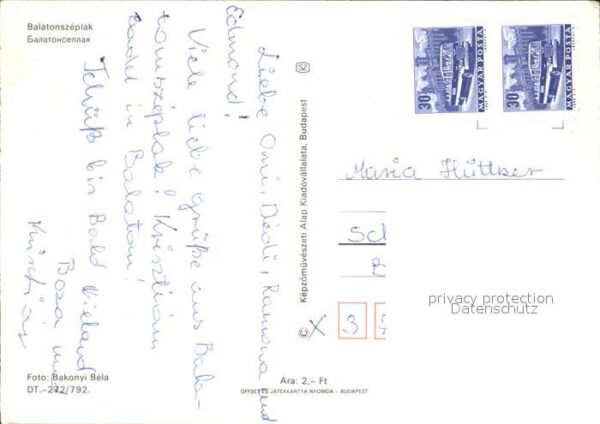 Balatonszéplak
Балатонсеплак
Liebe Omi, Dédi, Ramona und
Edmond!
Viele liebe grüße aus Bala-
tonszéplak! Krisztián
badet in Balaton!
Tchüß bis Bald
Krisztián
Foto: Bakonyi Béla
DT.–272/792.
© Képzőművészeti Alap Kiadóvállalata, Budapest
Ára: 2,– Ft
OFFSET ÉS JÁTÉKKÁRTYA NYOMDA – BUDAPEST
30 MAGYAR POSTA
30 MAGYAR POSTA
Maria Hüttker
Sch
X 3
privacy protection
Datenschutz